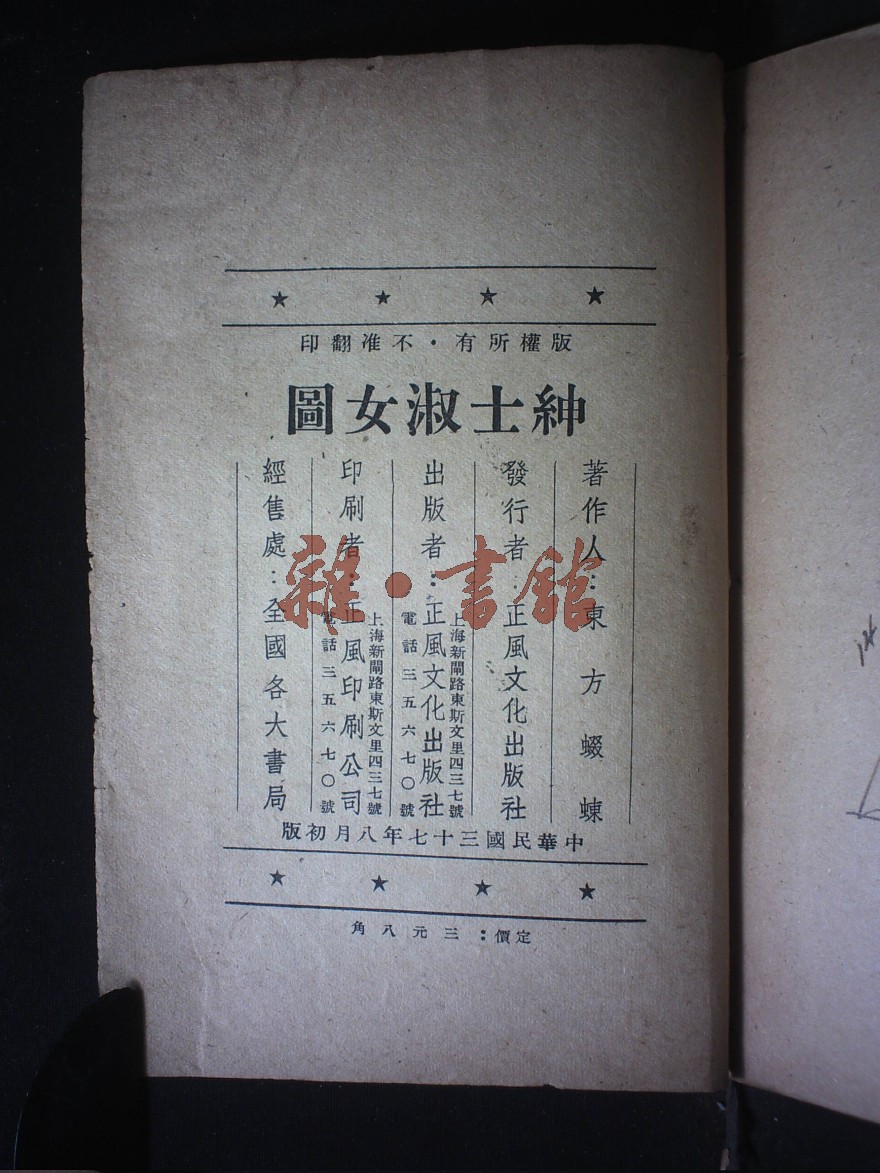 版權所有·不准翻印
紳士淑女圖
著作人：東方蝃蝀
發行者：正風文化出版社
上海新閘路東斯文里四三七號
出版者：正風文化出版社
電話三五六七〇號
上海新閘路東斯文里四三七號
印刷者：正風印刷公司
電話三五六七〇號
經售處：全國各大書局
中華民國三十七年八月初版
定價：三元八角
雜·書館